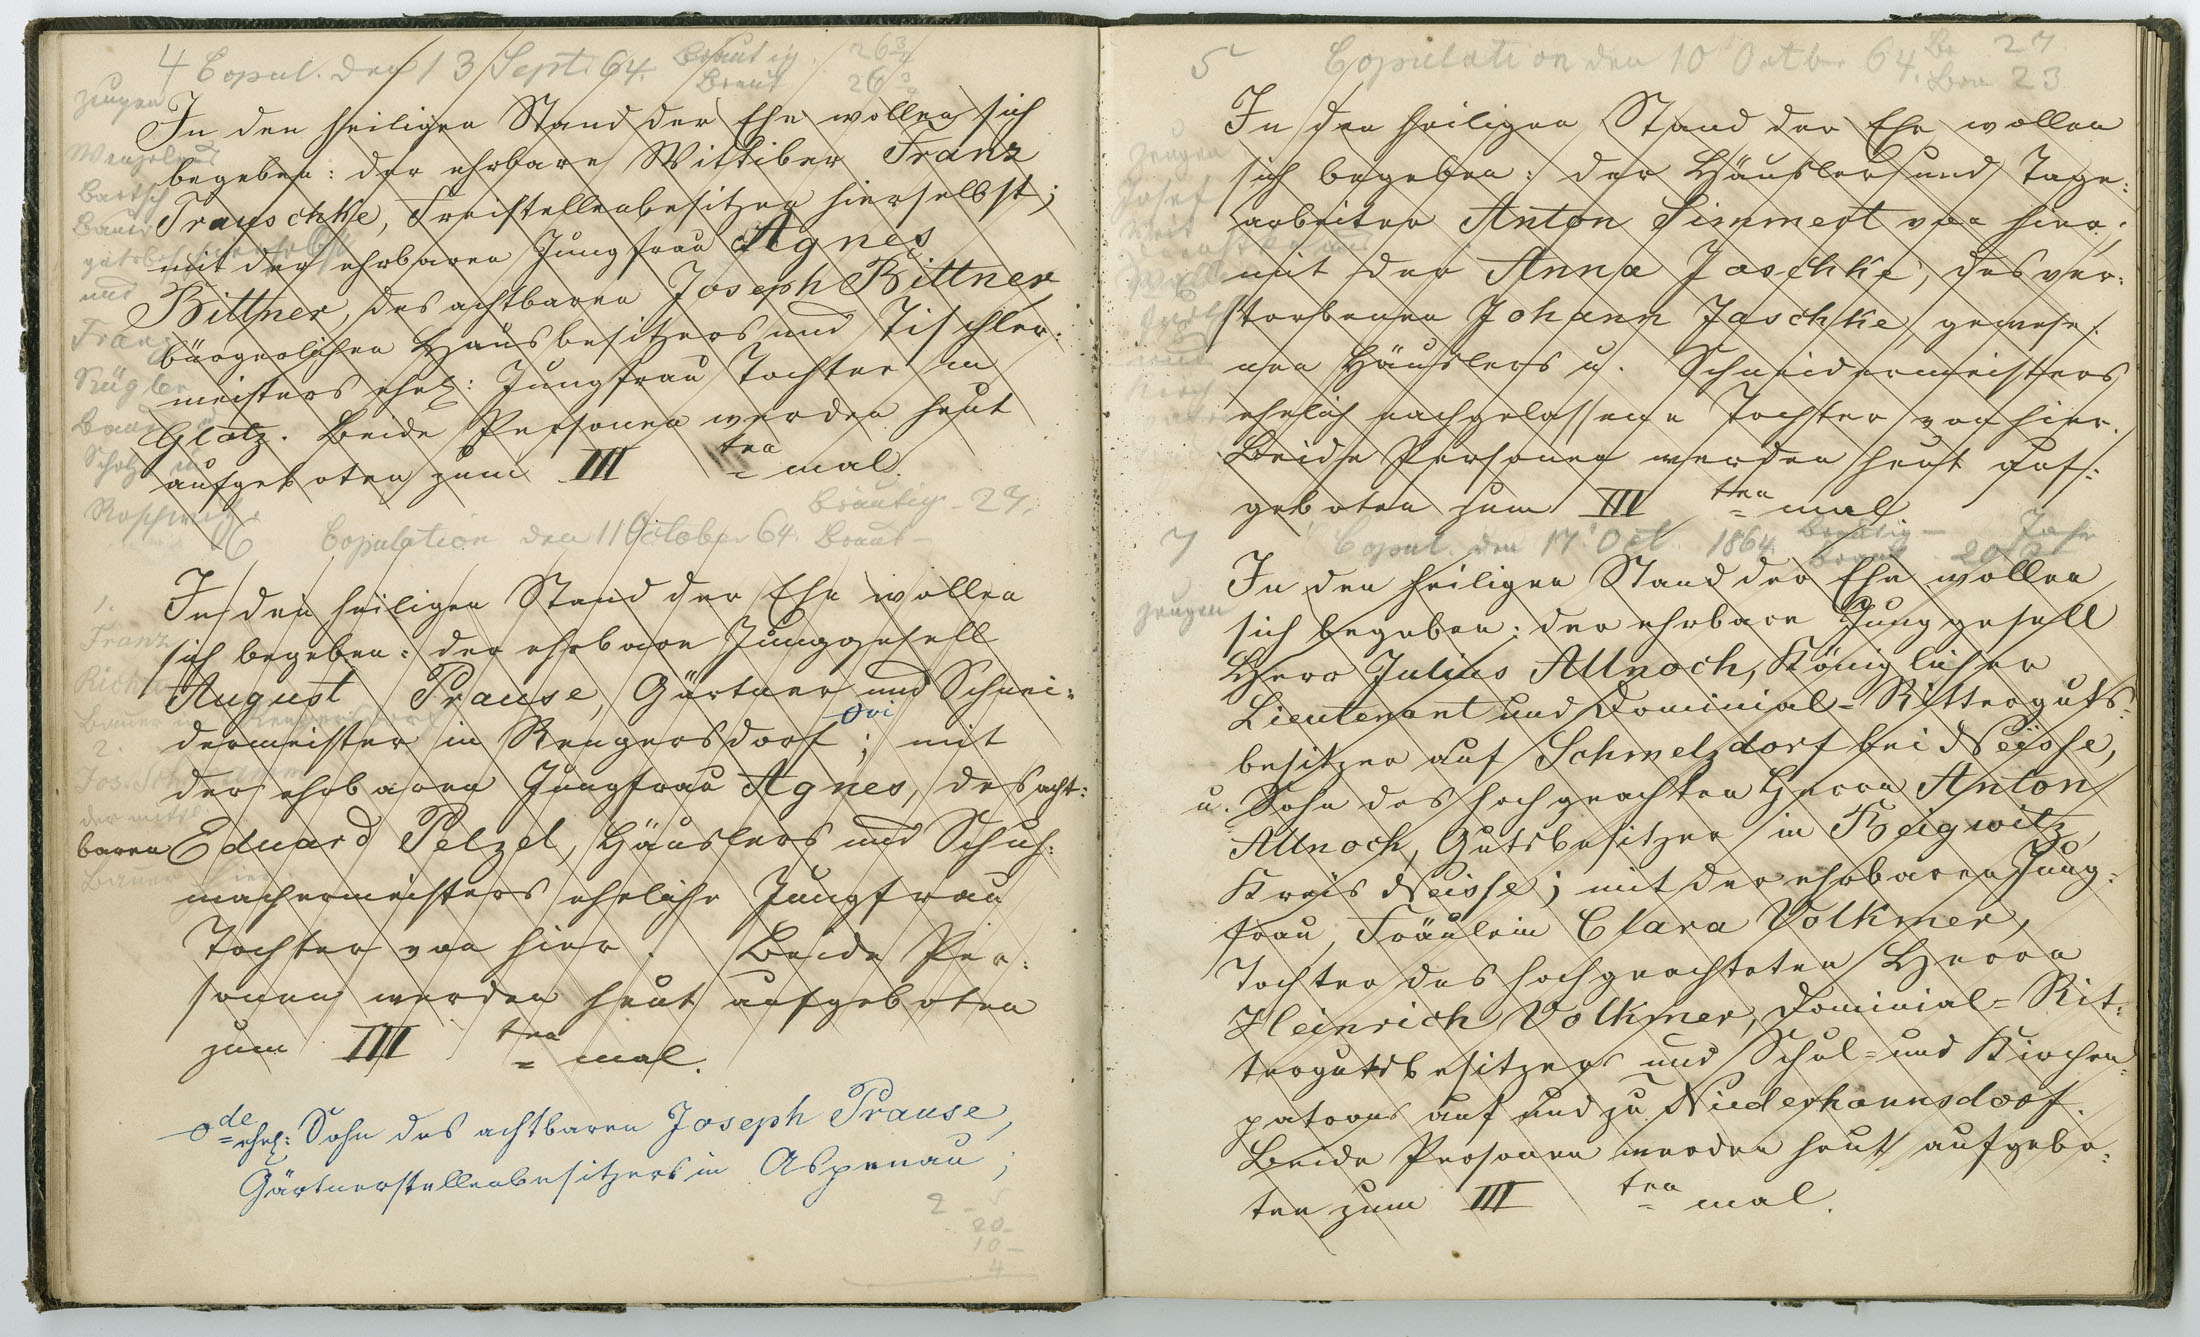 4 Copul. den 13 Sept. 64. Bräutig. 26 3/4
Braut 26
Zeugen
In den heiligen Stand der Ehe wollen sich
begeben: der ehrbare Wittiber Franz
Prauschke, Freistellenbesitzer hierselbst;
mit der ehrbaren Jungfrau Agnes
Bittner, des achtbaren Joseph Bittner
bürgerlichen Hausbesitzers und Tischler:
meisters ehel: Jungfrau Tochter in
Glatz. Beide Personen werden heut
aufgeboten zum III ten mal.
Bartsch
Bauer
und
Franz
Kügler
Scholz
6 Copulation den 11 October 64. Bräutig. 27.
Braut
In den heiligen Stand der Ehe wollen
sich begeben: der ehrbare Junggesell
August Prause, Gärtner und Schnei:
dermeister in Rengersdorf; mit
der ehrbaren Jungfrau Agnes, des acht:
baren Eduard Pelzel, Häuslers und Schuh:
machermeisters eheliche Jungfrau
Tochter von hier. Beide Per:
sonen werden heut aufgeboten
zum III ten mal.
1.
Franz
Bauer in Rengersdorf
2.
Bauer hier
ehel: Sohn des achtbaren Joseph Prause,
Gärtnerstellenbesitzers in Aspenau;
2
20
10
4
5 Copulation den 10 October 64. Br. 27
Brau 23
Zeugen
Josef
In den heiligen Stand der Ehe wollen
sich begeben: der Häusler und Tage:
arbeiter Anton Simmert von hier;
mit der Anna Jaschke, des ver:
storbenen Johann Jaschke, gewese:
nen Häuslers u. Schneidermeisters
ehelich nachgelassene Tochter von hier.
Beide Personen werden heut auf:
geboten zum III ten mal
7 Copul. den 17. Oct. 1864. Bräutig — Jahr
Braut 20
Zeugen
In den heiligen Stand der Ehe wollen
sich begeben: der ehrbare Junggesell
Herr Julius Allnoch, Königlicher
Lieutenant und Dominial-Ritterguts:
besitzer auf Schmelzdorf bei Neisse,
u. Sohn des hochgeachten Herrn Anton
Allnoch, Gutsbesitzer in
Kreis Neisse; mit der ehrbaren Jung:
frau, Fräulein Clara Volkmer,
Tochter des hochgeachteten Herrn
Heinrich Volkmer, Dominial-Rit:
tergutsbesitzers und Schul- und Kirchen:
patrons auf und zu Niederhannsdorf.
Beide Personen werden heut aufgebo:
ten zum III ten mal.